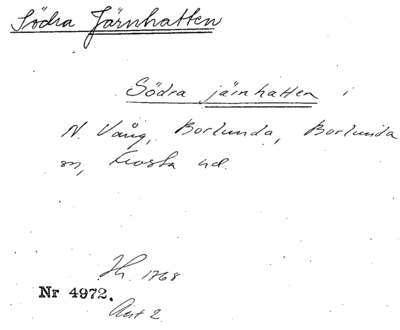 Södra Järnhatten
Södra järnhatten i
N. Vång, Borlunda, Borlunda
sn, Frosta hd.
Jh. 1768
Nr 4972.
Akt 2